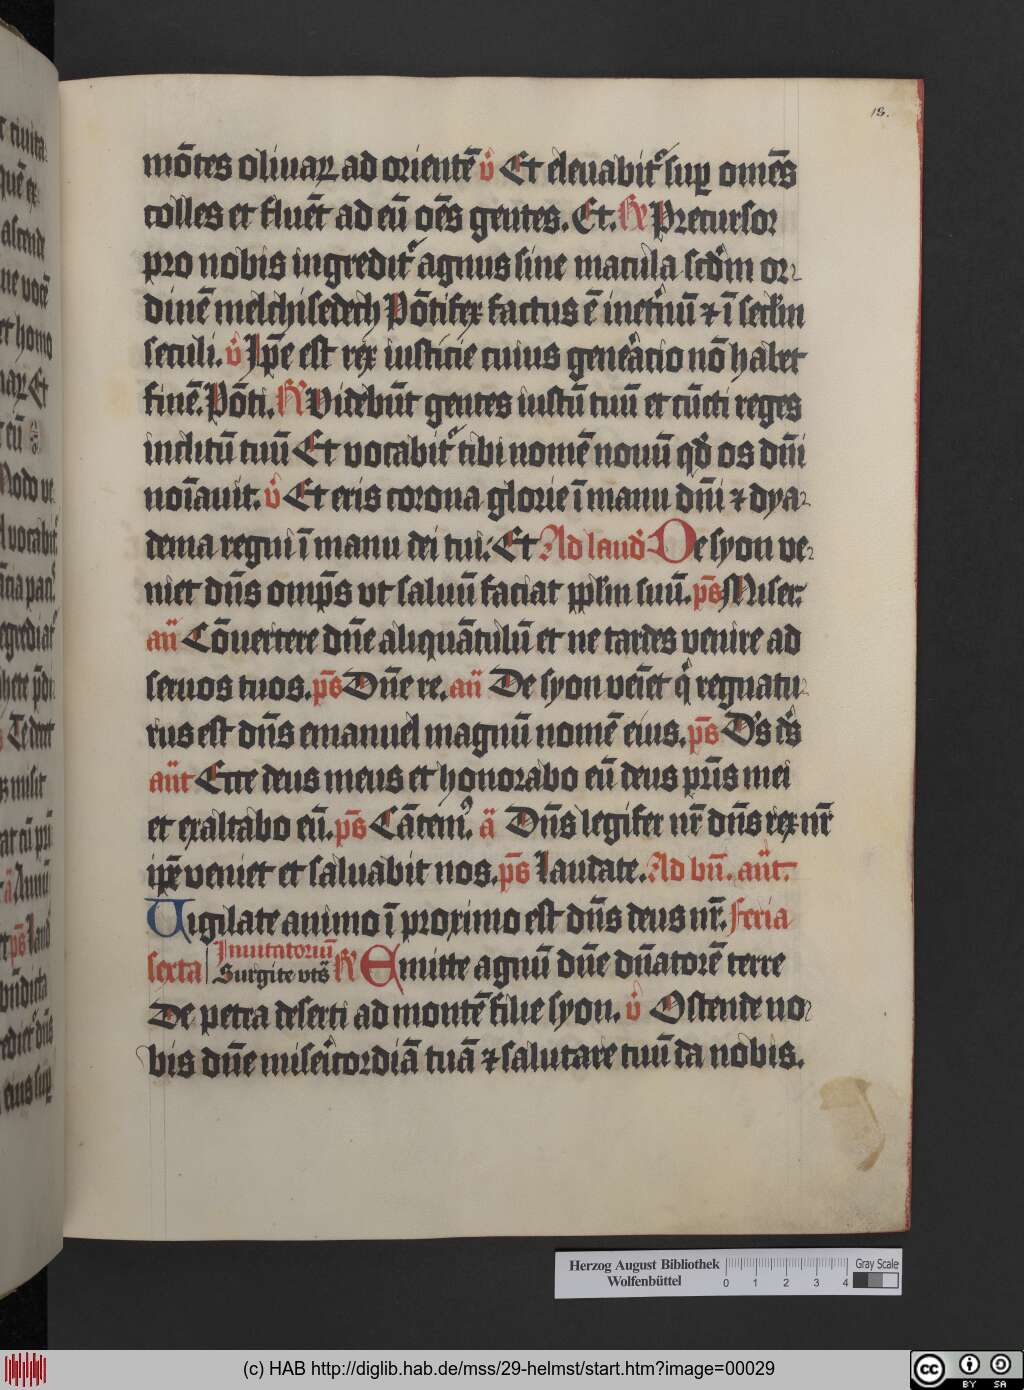 15.
mōtes oliuaꝝ ad orientē ℣ Et eleuabitᷣ sup̱ omēs
colles et fluēt ad eū oēs gentes. Et. ℟ Precursor
pro nobis ingreditᷣ agnus sine macula scd̄m or-
dinē melchisedech Pōtifex factus ē inet̄nū ⁊ ī secl̄m
seculi. ℣ Ip̄e est rex iusticie cuius genēacio nō habet
finē. Pōti. ℟ Videbūt gentes iustū tuū et cūcti reges
inclitū tuū Et vocabitᷣ tibi nomē nouū qd̄ os dn̄i
noīauit. ℣ Et eris corona glorie ī manu dn̄i ⁊ dya-
dema regni ī manu dei tui: Et Ad laud̄ De syon ve-
niet dn̄s omp̄s vt saluū faciat ppl̄m suū. p̄s Miser.
an̄ Cōuertere dn̄e aliquātulū et ne tardes venire ad
seruos tuos. p̄s Dn̄e re. an̄ De syon vēiet qͥ regnatu-
rus est dn̄s emanuel magnū nomē eius. p̄s D's d's
an̄t Ecce deus meus et honorabo eū deus pr̄is mei
et exaltabo eū. p̄s Cātemꝰ. ā Dn̄s legifer nr̄ dn̄s rex nr̄
ip̄e veniet et saluabit nos. p̄s Laudate. Ad bn̄. an̄t.
Uigilate animo ī proximo est dn̄s deus nr̄. feria
sexta Inuitatoriū Surgite vts̄ ℟ Emitte agnū dn̄e dn̄atorē terre
De petra deserti ad montē filie syon. ℣ Ostende no-
bis dn̄e miscͥcordiā tuā ⁊ salutare tuū da nobis.
Herzog August Bibliothek
Wolfenbüttel
0 1 2 3 4
Gray Scale
(c) HAB http://diglib.hab.de/mss/29-helmst/start.htm?image=00029
cc BY SA